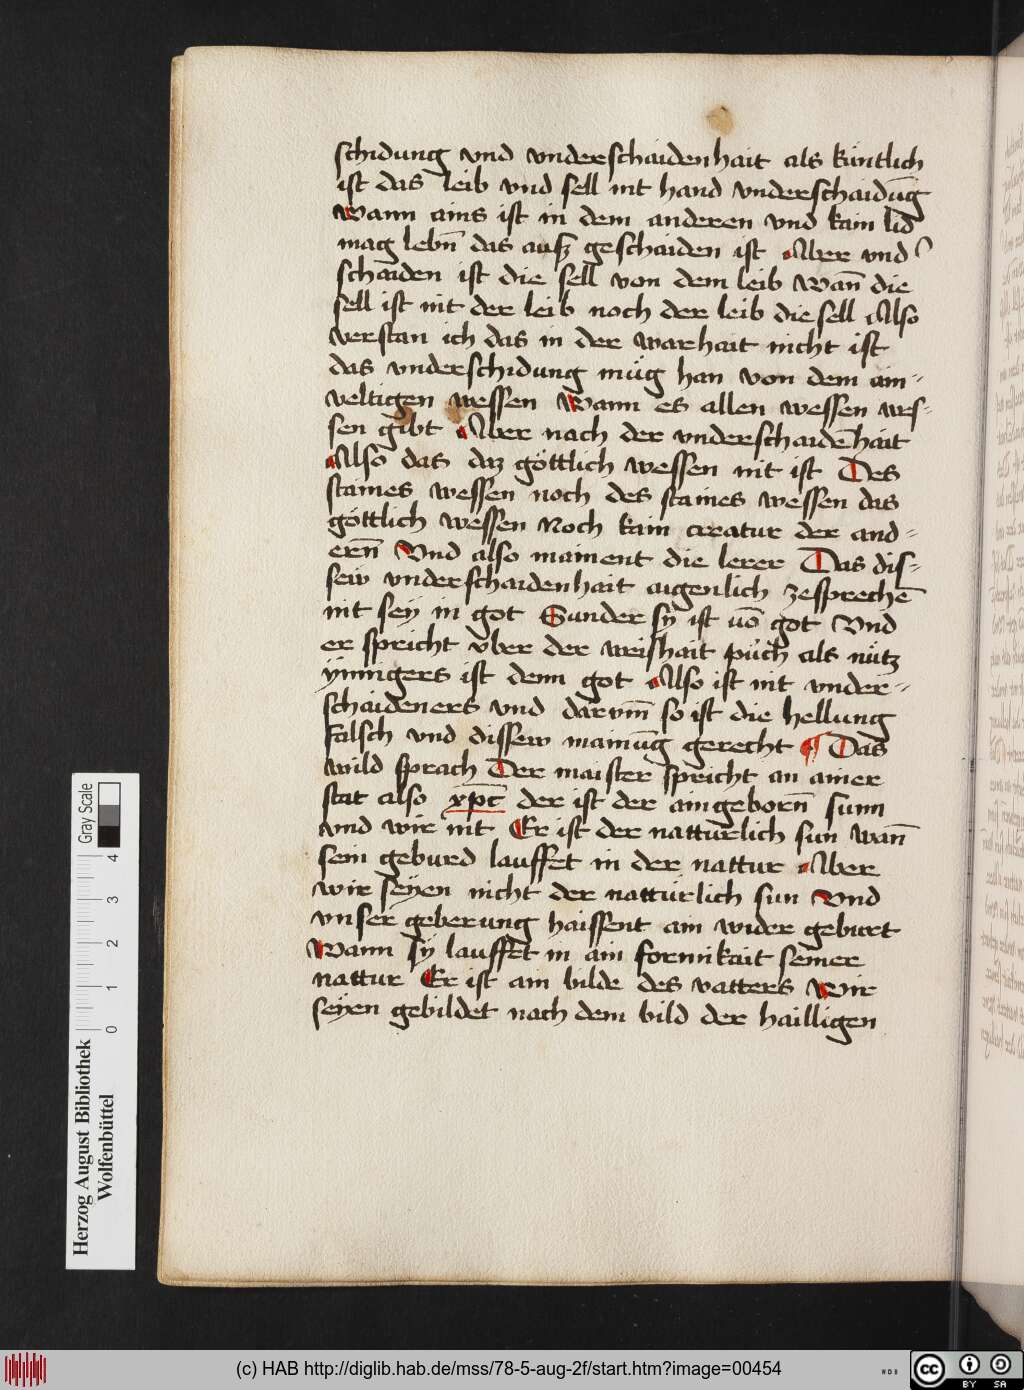 schidung vnd vnderschaidenhait als kùntlich
ist das leib vnd sell nit hand vnderschaidūg
Wann ains ist in dem anderen vnd kain lid
mag lebn̄ das ausz geschaiden ist Aber vnd
schaiden ist die sell von dem leib Wan̄ die
sell ist nit der leib noch der leib die sell Also
verstan ich das in der warhait nicht ist
das vnderschidung mùg han von dem ain-
veltigen wessen Wann es allen wessen wes-
sen gibt Aber nach der vnderschaidēhait
Also das daz göttlich wessen nit ist Des
staines wessen noch des staines wessen das
göttlich wessen Noch kain creatur der and-
ern̄ Vnd also mainent die lerer Das dis-
sew vnderschaidenhait aigenlich zesprechē
nit sey in got Sunder sÿ ist uō got Vnd
er spricht vber der weishait pùch als nùtz
ÿnnigers ist denn got Also ist nit vnder-
schaideners vnd darvm̄ so ist die hellung
falsch vnd dissew mainūg gerecht ¶ Das
wild sprach Der maister spricht an ainer
stat also xp̄c der ist der aingeborn̄ sunn
vnd wir nit Er ist der natturlich sun wan̄
sein geburd lauffet in der nattur Aber
wir seyen nicht der natturlich sun Vnd
vnser geberung haissent ain wider geburt
Wann sÿ lauffet in ain formikait seiner
nattur Er ist ain bilde des vatters Wir
seyen gebildet nach dem bild der hailligen
Herzog August Bibliothek
Wolfenbüttel
0 1 2 3 4
Gray Scale
(c) HAB http://diglib.hab.de/mss/78-5-aug-2f/start.htm?image=00454
WDB
cc BY SA